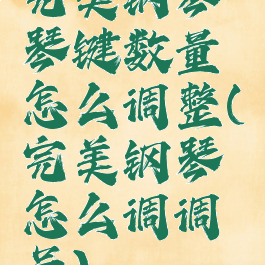 完美钢琴
琴键数量
怎么调整(
完美钢琴
怎么调调
号)